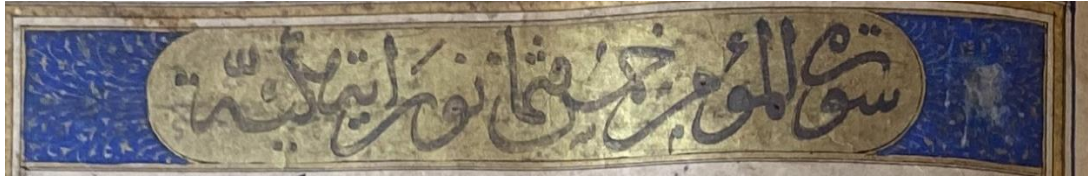 سورة المؤمن خمس وثمانون اية مكية